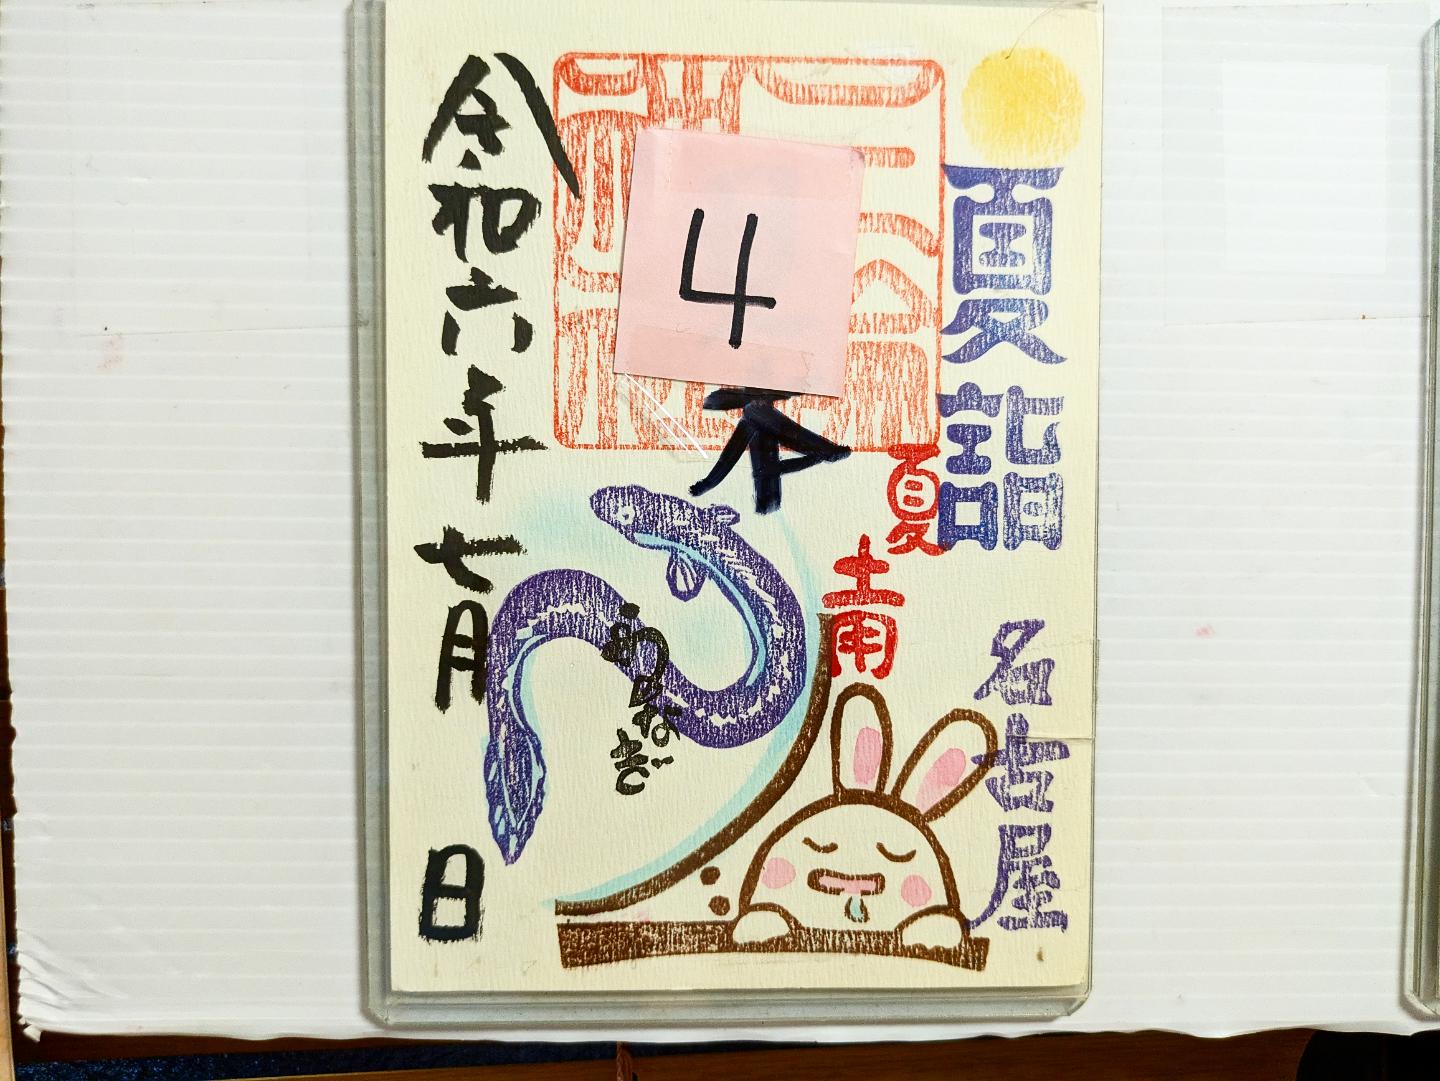 夏詣
名古屋
夏
土用
4
うなぎ
令和六年七月 日